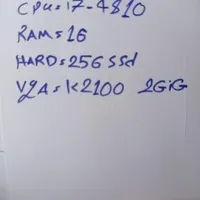 CPU=i7-4810
RAM=16
HARD=256 SSd
VGA=K2100 2GiG